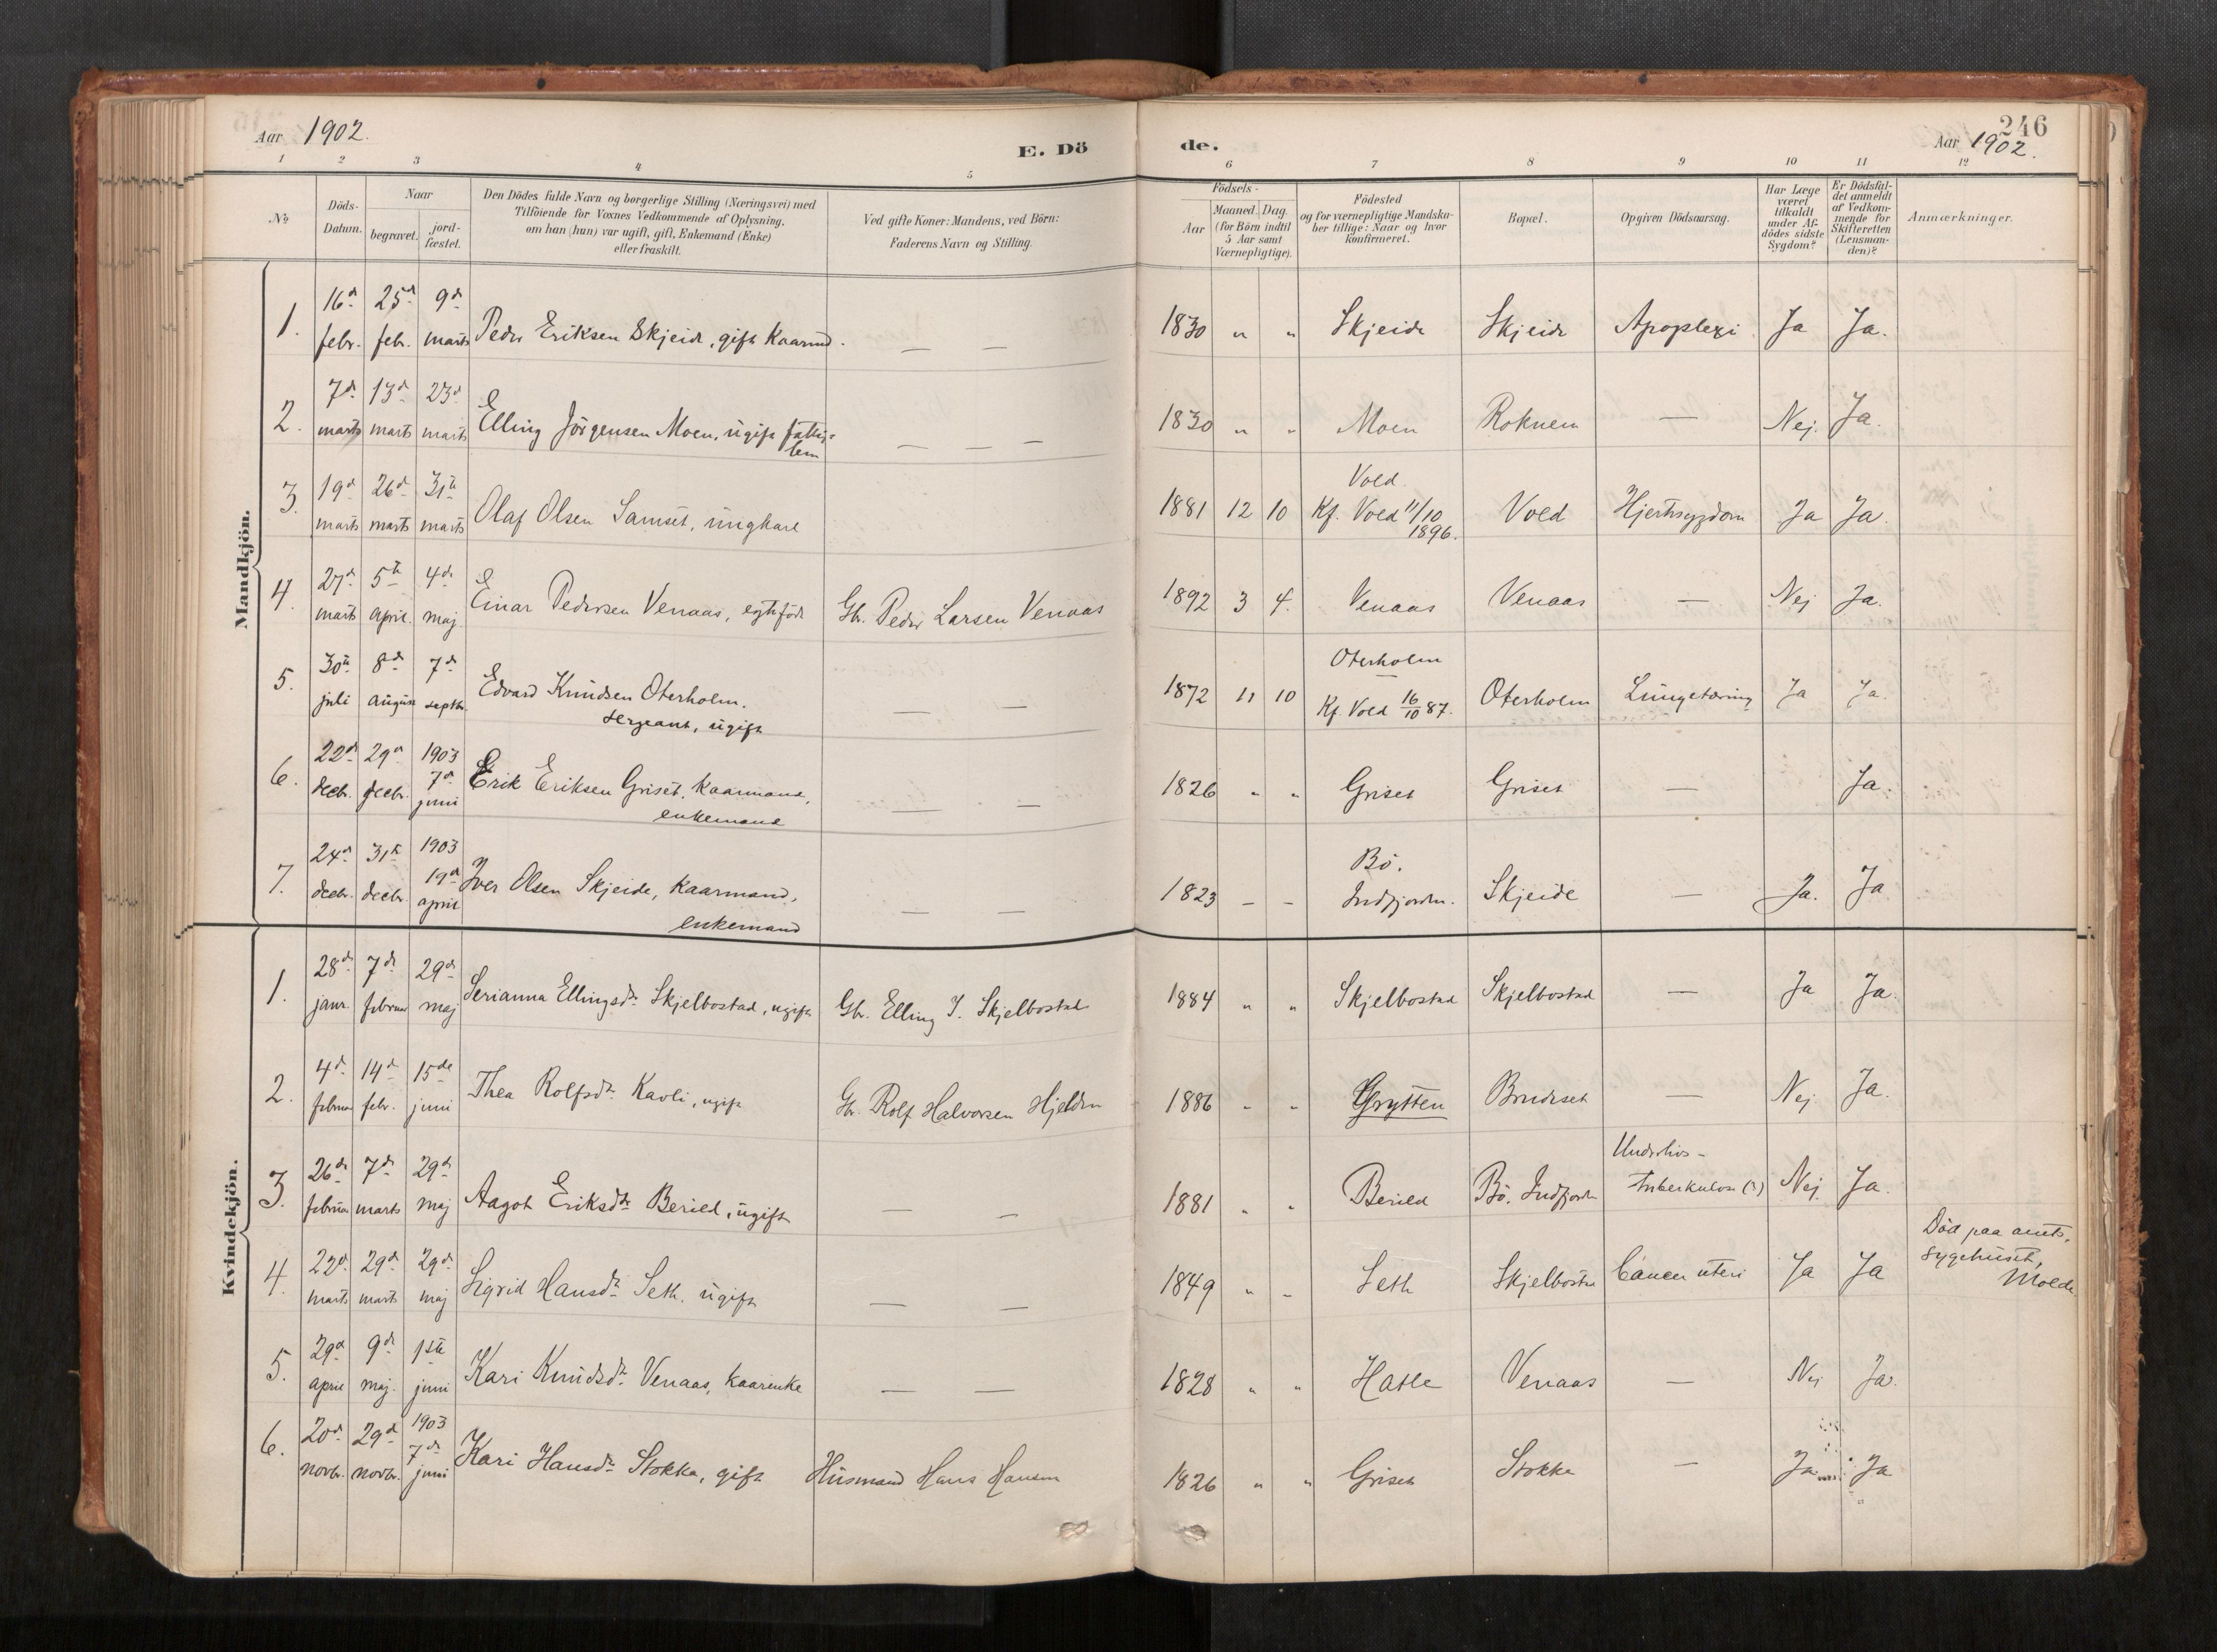 Aar 1902.
E. Dö
de.
246
Aar 1902.
1 2 3 4 5 6 7 8 9 10 11 12
No.
Döds-
Datum.
Naar
begravet.
jord-
fæstet.
Den Dödes fulde Navn og borgerlige Stilling (Næringsvei) med
Tilföiende for Voxnes Vedkommende af Oplysning.
om han (hun) var ugift, gift, Enkemand (Enke)
eller fraskilt.
Ved gifte Koner: Mandens, ved Börn:
Faderens Navn og Stilling.
Födsels-
Aar
Maaned. Dag.
(for Börn indtil
5 Aar samt
Værnepligtige).
Födested
og for værnepligtige Mandska-
ber tillige: Naar og hvor
konfirmeret.
Bopæl.
Opgiven Dödsaarsag.
Har Læge
været
tilkaldt
under Af-
dödes sidste
Sygdom?
Er Dödsfal-
det anmeldt
af Vedkom-
mende for
Skifteretten
(Lensman-
den)?
Anmærkninger.
Mandkjön.
1. 16d febr. 25d febr. 9d marts Peder Eriksen Skjeide, gift Kaarmd. — — 1830 " " Skjeide Skjeide Apoplexi Ja Ja.
2. 7d marts 13d marts 23d marts Elling Jörgensen Moen, ugift fattig-
lem — — — 1830 " " Moen Roknem — Nej. Ja.
3. 19d marts 26d marts 31te marts Olaf Olsen Samset, ungkarl 1881 12 10 Vold.
Kf. Vold 11/10
1896. Vold Hjertesygdom Ja Ja.
4. 27d marts 5te april. 4de maj Einar Pedersen Venaas, egtefödt Gbr. Peder Larsen Venaas 1892 3 4. Venaas Venaas — Nej Ja.
5. 30te juli 8d august 7d septbr. Edvard Knudsen Oterholm.
sergeant, ugift — — 1872 11 10 Oterholm
Kf. Vold 16/10 87. Oterholm Lungetæring Ja Ja.
6. 22d decbr. 29d decbr. 1903 7d juni Erik Eriksen Griset. Kaarmand,
enkemand — — 1826 " " Griset Griset — Ja.
7. 24d decbr. 31te decbr. 1903 19d april Iver Olsen Skjeide, Kaarmand,
enkemand — — 1823 – – Bö.
Indfjorden. Skjeide — Ja. Ja
Kvindekjön.
1. 28d janr. 7d februar 29d maj Serianna Ellingsdr. Skjelbostad, ugift Gbr. Elling J. Skjelbostad 1884 " " Skjelbostad Skjelbostad — Ja Ja.
2. 4d februar 14d febr. 15de juni Thea Rolfsdr. Kavli, ugift Gbr. Rolf Halvorsen Hjelden 1886 " " Grytten Brudeset — Nej Ja.
3. 26d februar 7d marts 29d maj Aagot Eriksdtr. Berild, ugift — — 1881 " " Berild Bö. Indfjorden Underlivs-
tuberkulose (?) Nej. Ja.
4. 22d marts 29d marts 29d maj Sigrid Hansdr. Seth. ugift — — 1849 " " Seth Skjelbostad Cancer uteri Ja Ja Död paa amts-
sygehuset,
Molde
5. 29d april 9d maj. 1ste juni Kari Knudsdr. Venaas, kaarenke — — 1828 " " Hatle Venaas — Nej Ja.
6. 20d novbr. 29d novbr. 1903 7d juni Kari Hansdr. Stokke, gift Husmand Hans Hansen 1826 " " Griset Stokke — Ja Ja